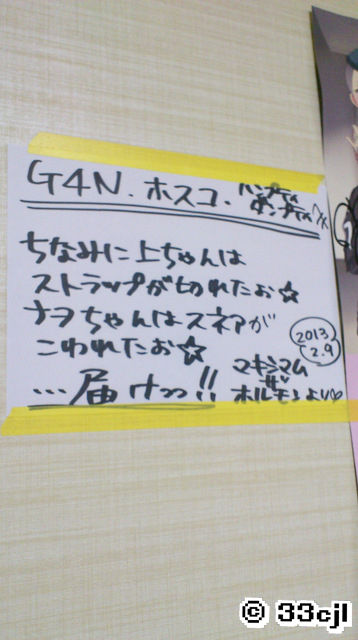 G4N、ホスコ、ハンプティ
ダンプティ
ちなみに上ちゃんは
ストラップが切れたお☆
ナヲちゃんはスネアが
こわれたお☆
2013
2.9
…届けっっ!!
マキシマム
ザ
ホルモンより♡
© 33cjl